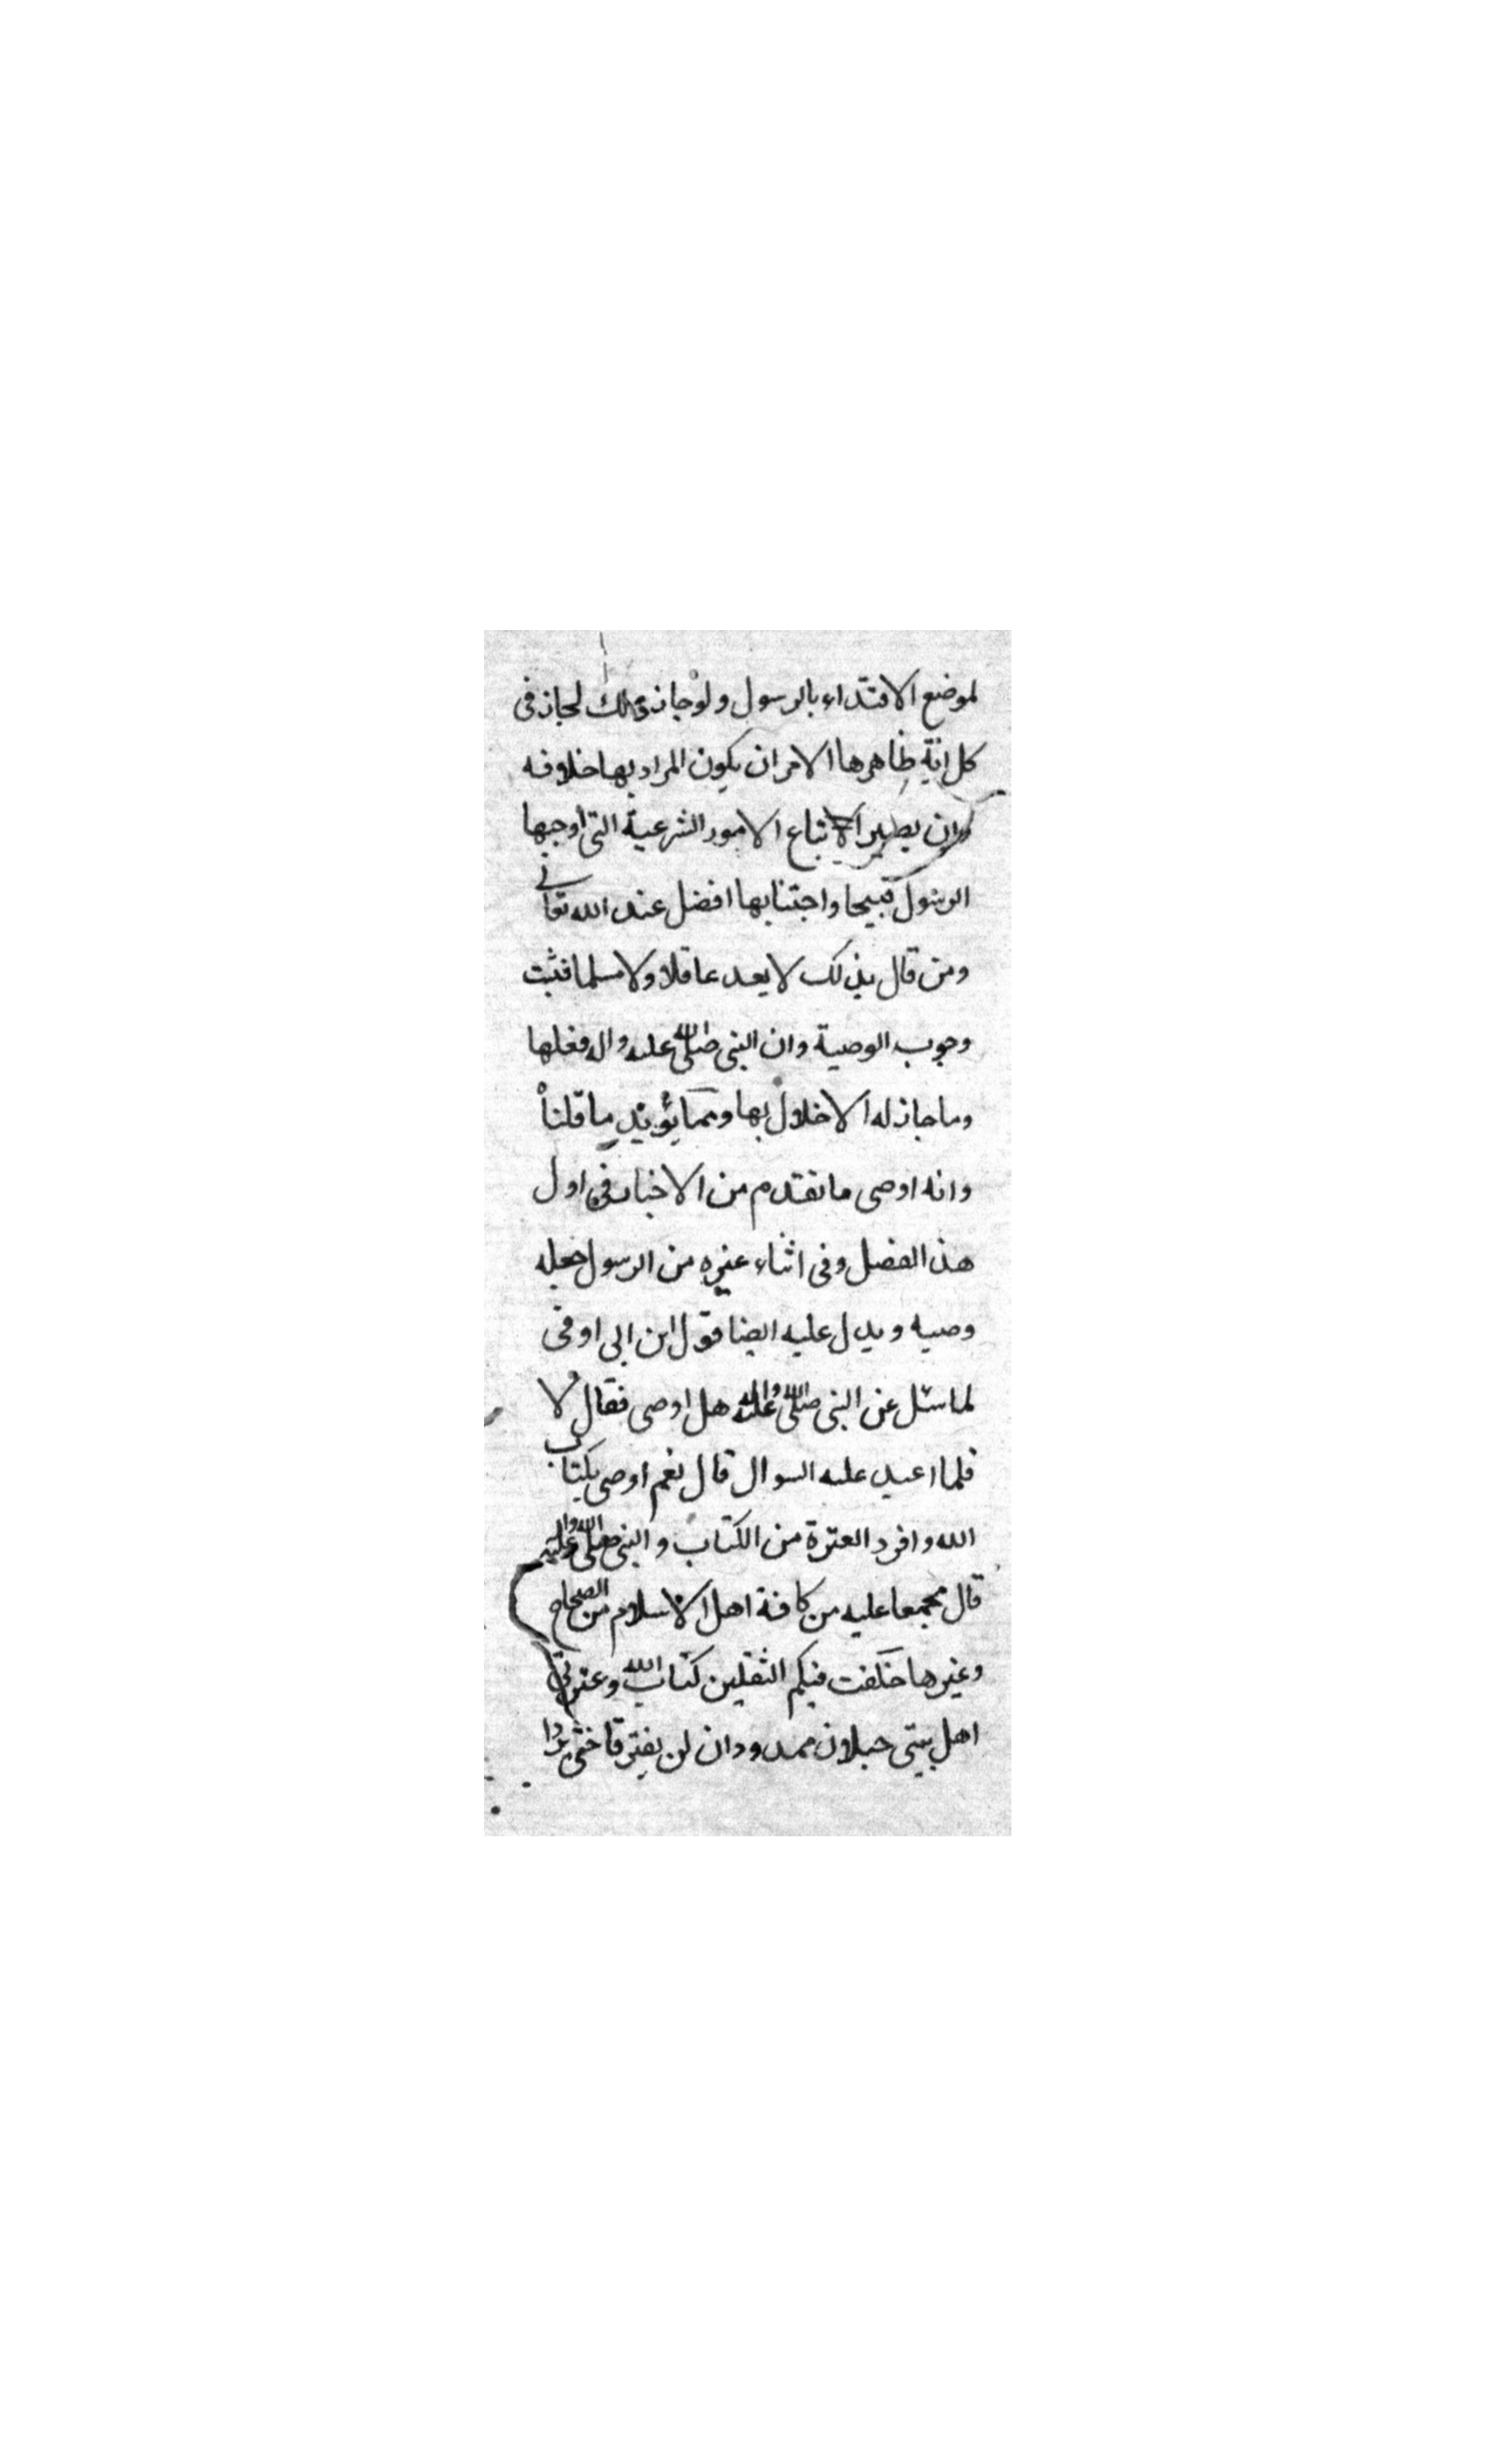 لموضع الاقتداء بالرسول ولو جاز ذلك لجاز فى
كل اية ظاهرها الامر ان يكون المراد بها خلافه
وان يصير الاتباع الامور الشرعية التى اوجبها
الرسول قبيحا واجتنابها افضل عند الله تعالى
ومن قال بذلك لا يعد عاقلا ولا مسلما فثبت
وجوب الوصية وان النبى صلى الله عليه واله فعلها
وما جاز له الاخلال بها ومما يؤيد ما قلناه
وانه اوصى ما تقدم من الاخبار فى اول
هذا الفصل وفى اثناء غيره من الرسول جعله
وصيه ويدل عليه ايضا قول ابن ابى اوفى
لما سئل عن النبى صلى الله عليه واله هل اوصى فقال لا
فلما اعيد عليه السوال قال نعم اوصى بكتاب
الله وافرد العترة من الكتاب والنبى صلى الله عليه واله
قال مجمعا عليه من كافة اهل الاسلام من الصحاح
وغيرها خلفت فيكم الثقلين كتاب الله وعترتى
اهل بيتى حبلان ممدودان لن يفترقا حتى يردا